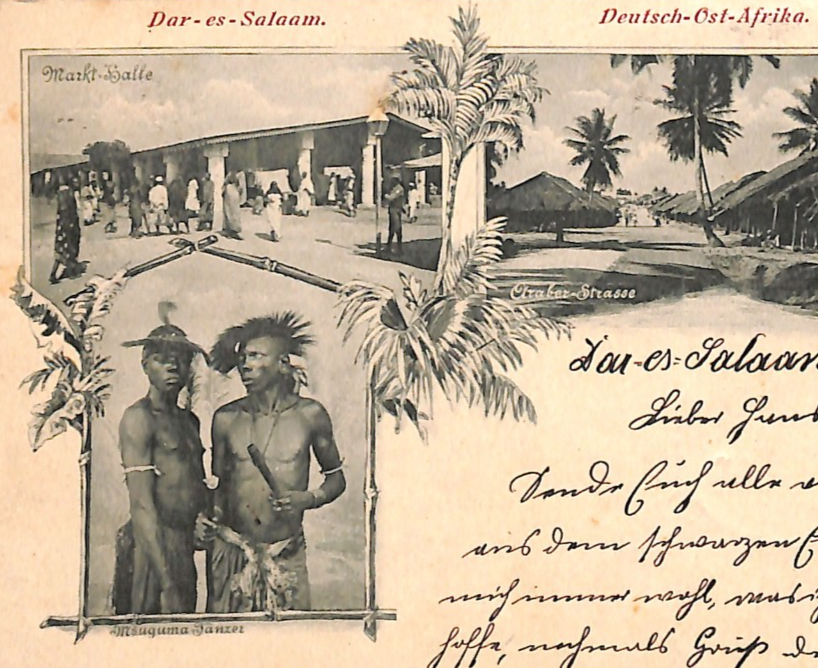 Dar-es-Salaam.
Deutsch-Ost-Afrika.
Markt-Halle
Araber-Strasse
Msuguma Tänzer
Dar-es-Salaam
Lieber Hans
Sende Euch alle
aus dem schwarzen
mich immer wohl, was
hoffe, nochmals Gruß